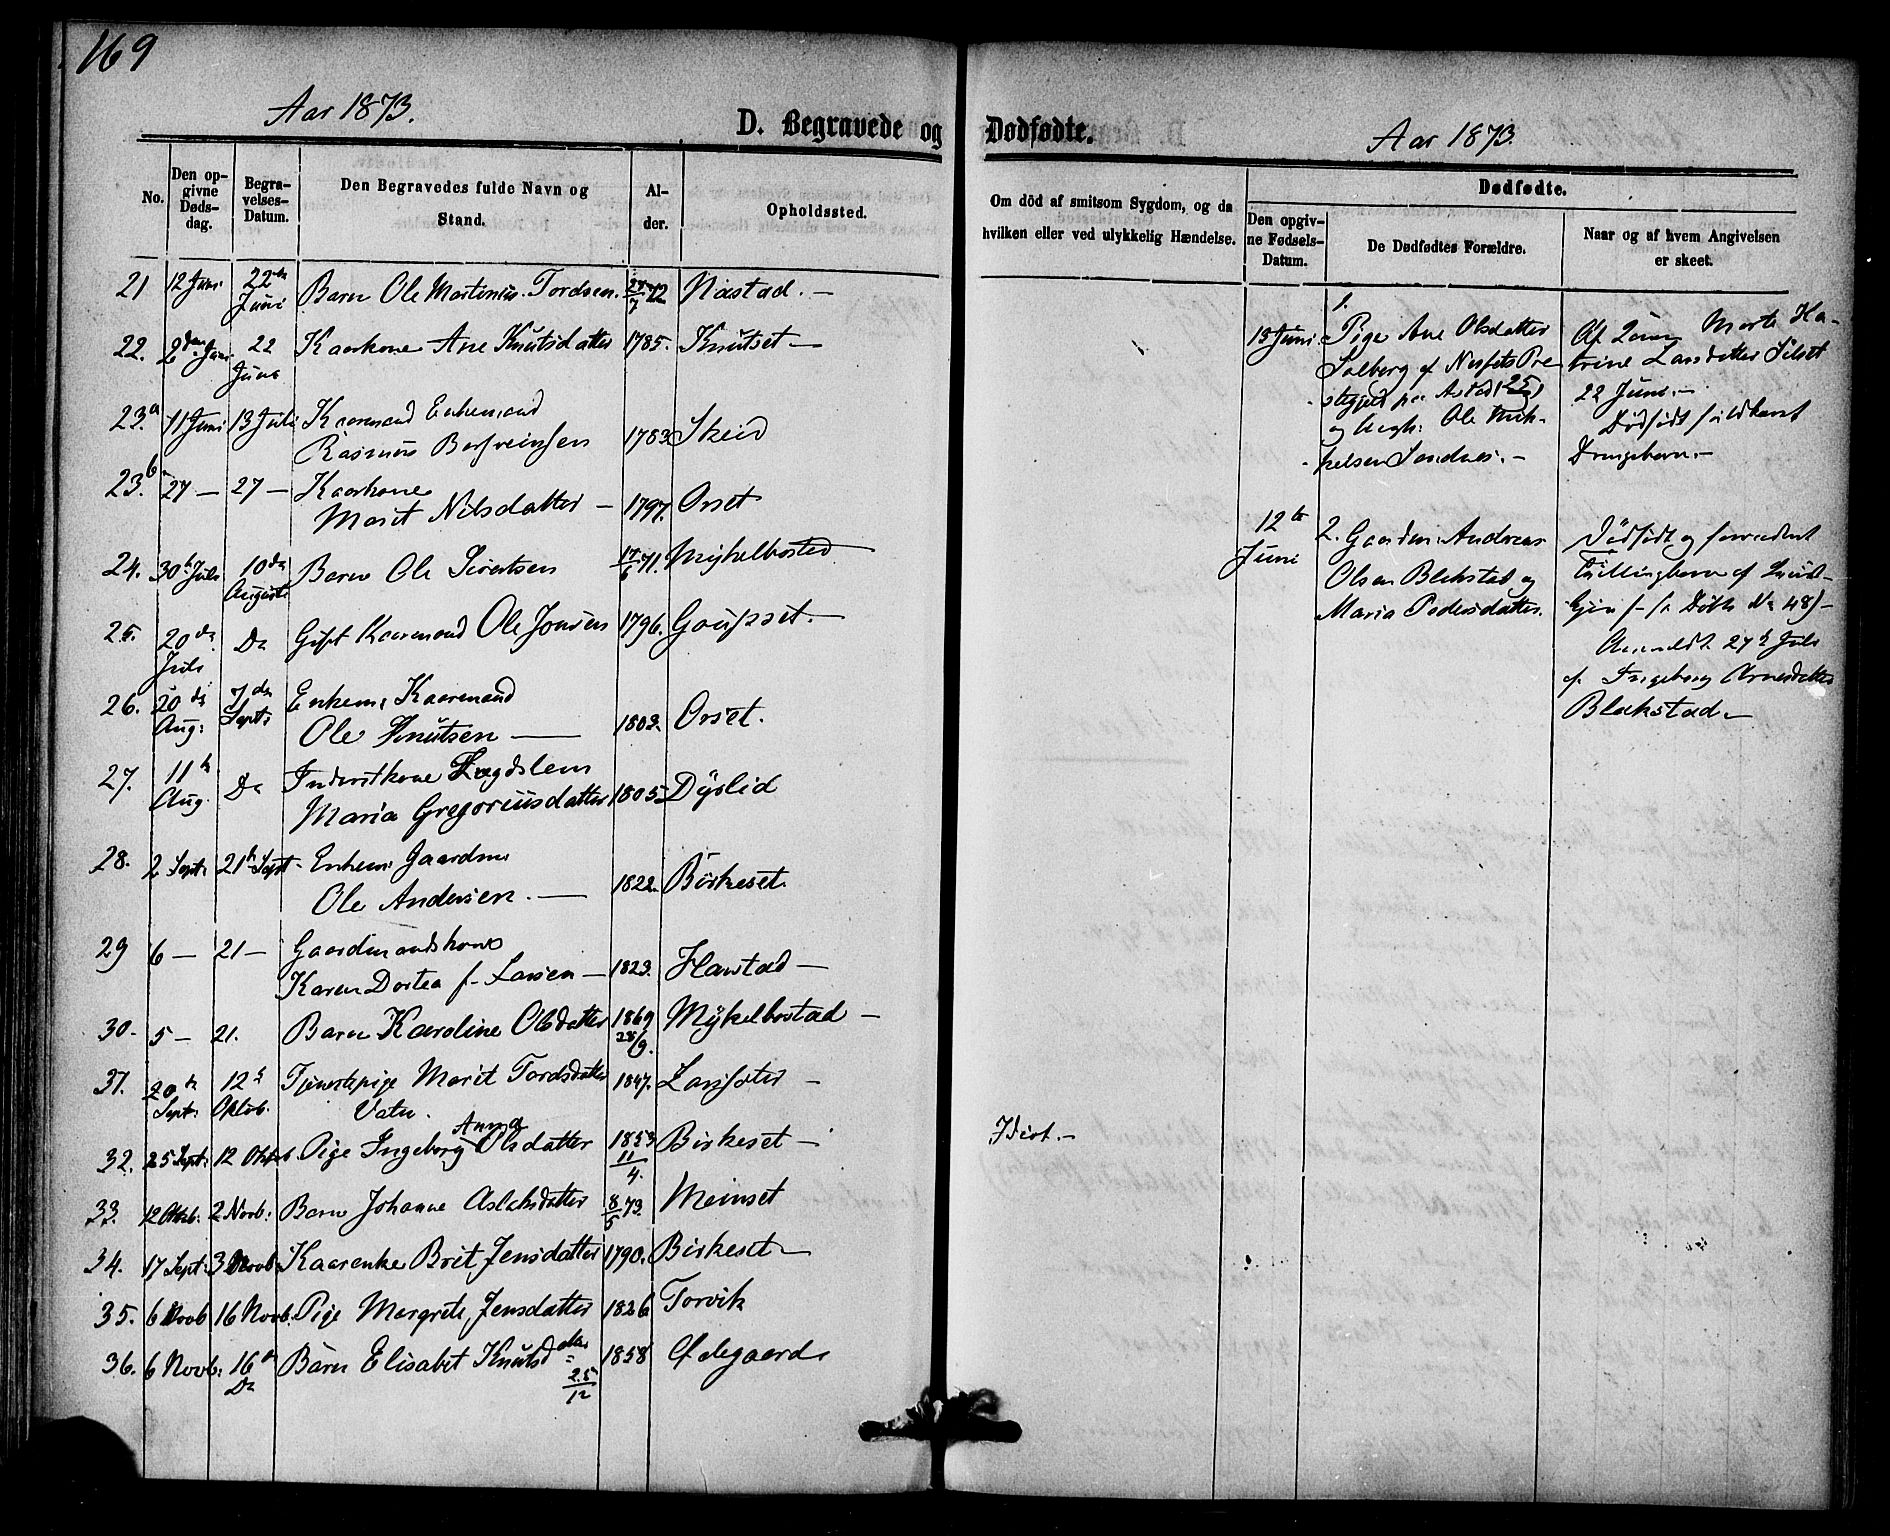 169
Aar 1873.
D. Begravede og Dødfødte.
Aar 1873.
No.
Den opgivne Dødsdag.
Begravelses-Datum.
Den Begravedes fulde Navn og Stand.
Alder.
Opholdssted.
Om död af smitsom Sygdom, og da hvilken eller ved ulykkelig Hændelse.
Dødfødte.
Den opgivne Fødsels-Datum.
De Dødfødtes Forældre.
Naar og af hvem Angivelsen er skeet.
21 12 Juni 22 Juni Barn Ole Martinus Tordsen. 72 Nastad. –
22. 2den Juni 22 Juni Kaarkone Ane Knutsdatter 1785. Knutset –
23.a 11 Juni 13 Juli Kaarmand Enkemand
Rasmus 1783 Skeid
23.b 27 – 27 – Kaarkone
Marit Nilsdatter – 1797. Orset
24. 30 Juli 10de August Barn Ole Sivertsen 71. Myhelbostad
25. 20de Juli Do Gift Kaarmand Ole Jonsen 1796. Goupset. –
26. 20de Aug: 7de Sept: Enkem: Kaarmand
Ole Knutsen – 1803. Orset.
27. 11 Aug. Do Inderstkone Lægdslem
Maria Gregoriusdatter 1805 Dyslid
28. 2 Sept: 21 Sept. Enkem: Gaardm:
Ole Andersen. – 1822. Birkeset.
29 6 – 21 – Gaardmandskone
Karen Dortea f. Larsen – 1823. Harstad –
30. 5 – 21. Barn Karoline Olsdatter 1869 28/9. Mykelbostad –
31. 20 Sept: 12 Oktob. Tjenestepige Marit Tordsdatter 1847. –
32. 25 Sept: 12 Oktob Pige Ingeborg Anna Olsdatter 1853 11/4. Birkeset – Idiot. –
33. 12 Oktb: 2 Novb: Barn Johanne Aslaksdatter 8/5 73. Meinset
34. 17 Sept: 3 Novb: Kaarenke Brit Jensdatter 1790. Birkeset –
35. 6 Novb 16 Novb. Pige Margrete Jensdatter 1826 Torvik
36. 6 Novb: 16 Do Barn Elisabet Knutsdatter 25/12 1858 Ødegaard
1.
13 Juni Pige Ane Olsdatter
Solberg af Nessets Pre-
stegjeld
og Ungk: Ole Mik-
kelsen Sandnes. –
Marte Ka-
trine Larsdatter Silset
22 Juni. –
Dødfødt fuldbaaret
Drengebarn. –
12te Juni 2. Gaardm: Andreas
Olsen Blakstad og
Maria Pedersdatter.
Dødfødt og
Tvillingbarn af
Kjøn No 48) –
Anmeldt 27 Juli
af Ingeborg Arnesdatter
Blakstad –